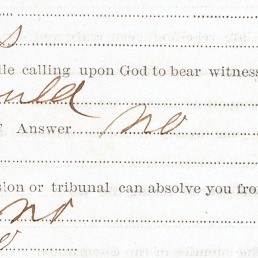 s
calling upon God to bear witness
ould
Answer no
sion or tribunal can absolve you fro
no